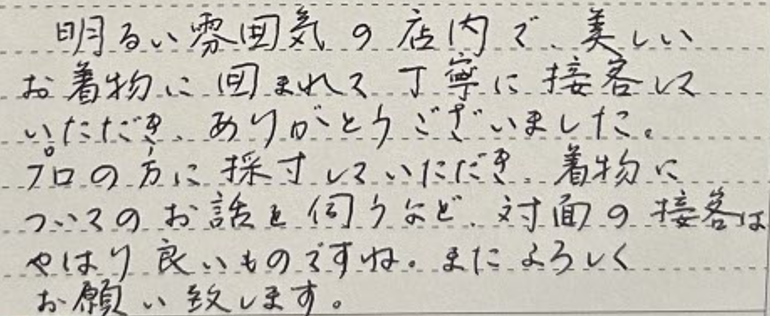 明るい雰囲気の店内で、美しい
お着物に囲まれて丁寧に接客して
いただき、ありがとうございました。
プロの方に採寸していただき、着物に
ついてのお話を伺うなど、対面の接客は
やはり良いものですね。またよろしく
お願い致します。